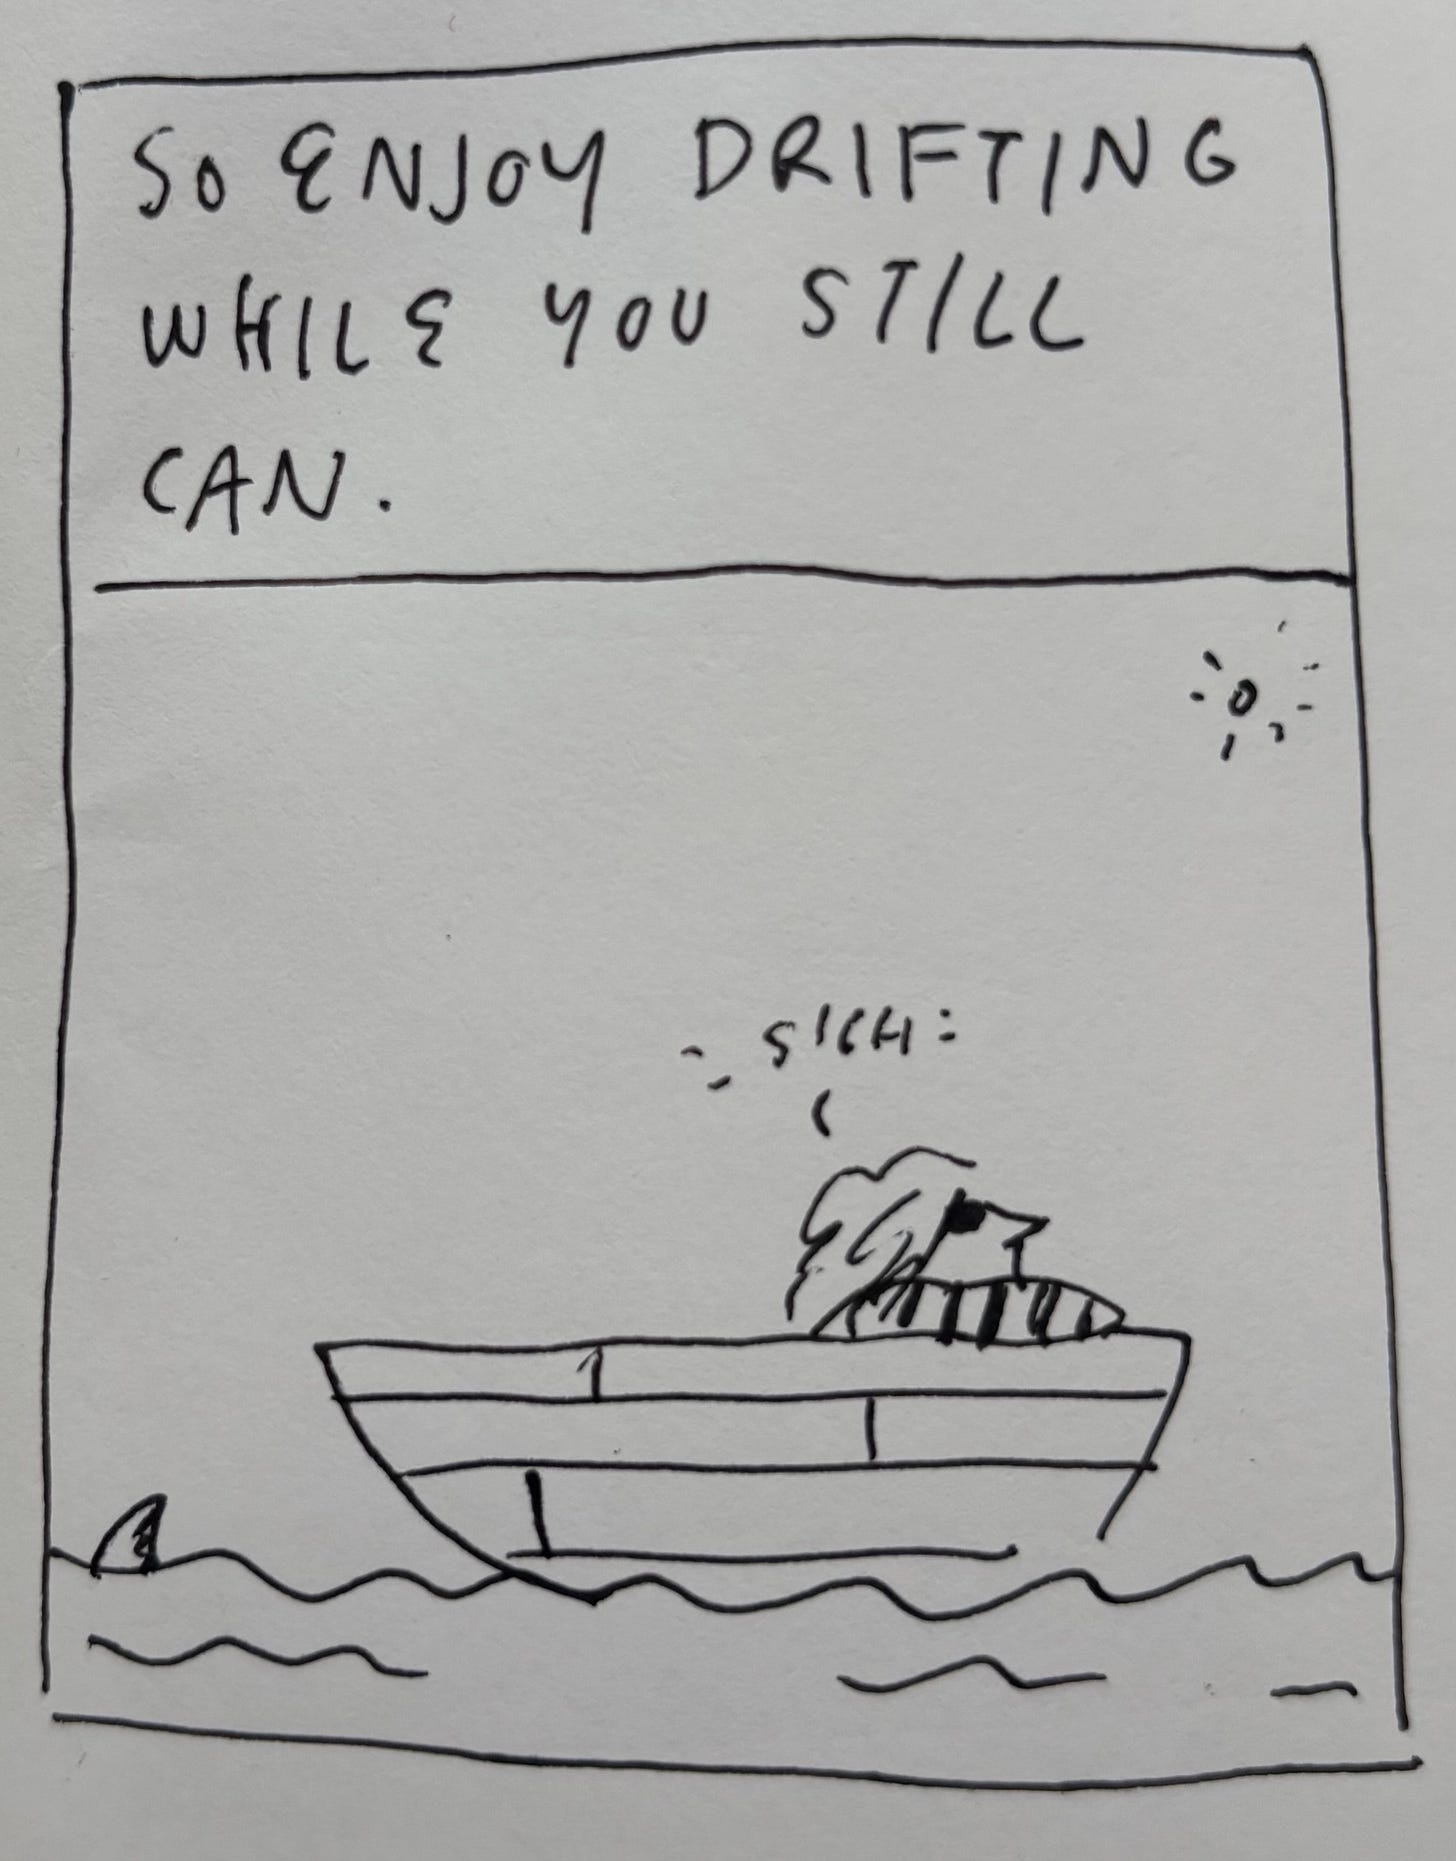 SO ENJOY DRIFTING
WHILE YOU STILL
CAN.
SIGH